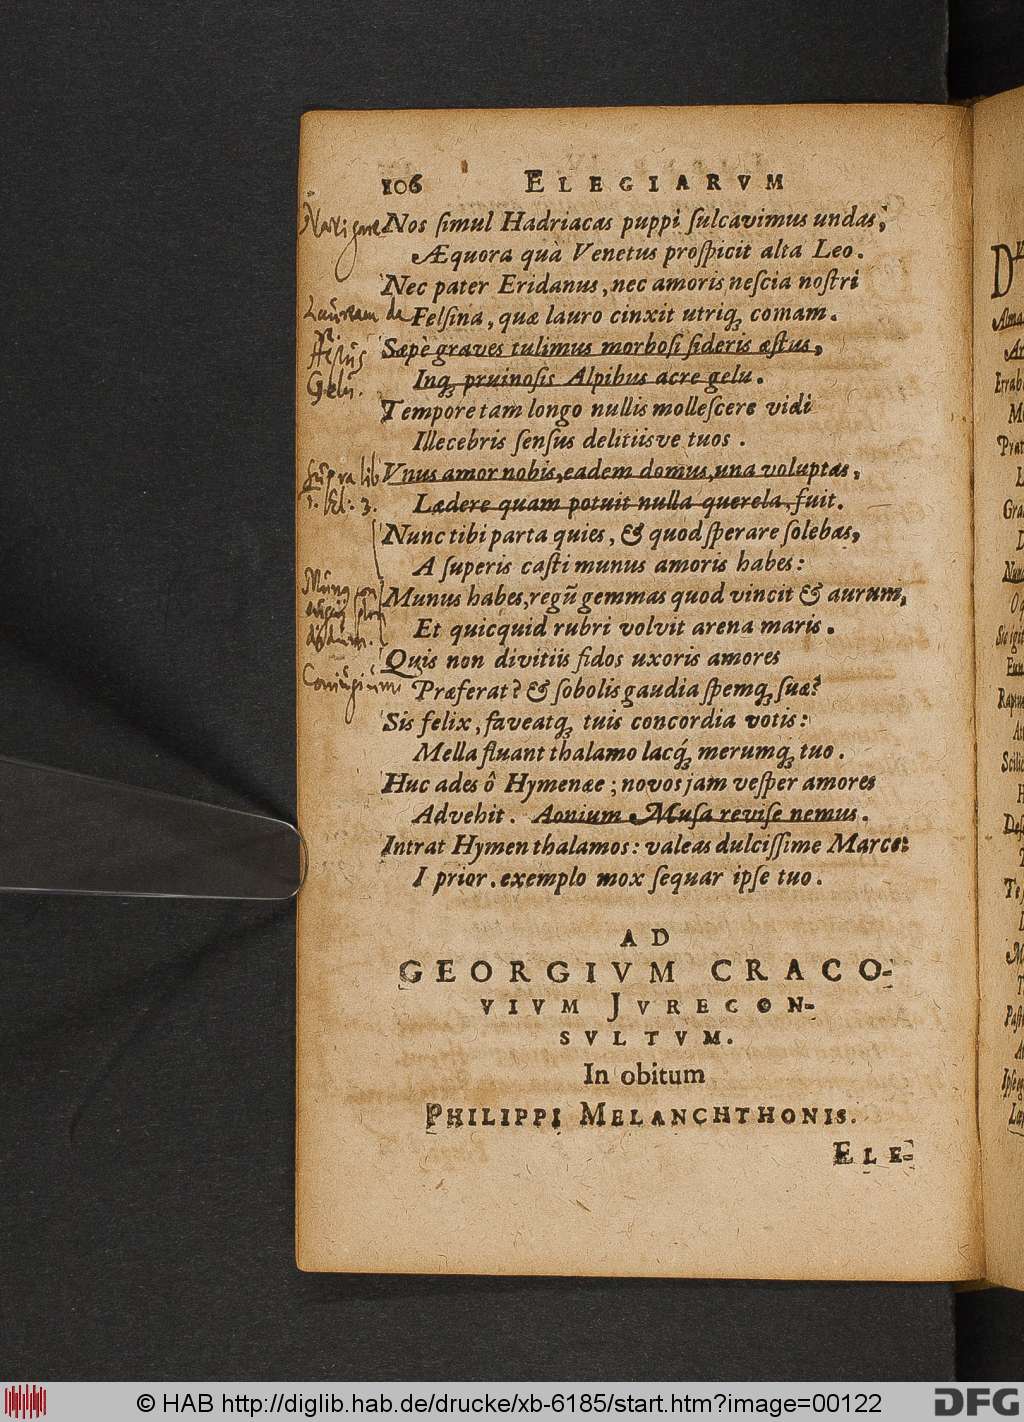 106 ELEGIARVM
Navigare
Nos ſimul Hadriacas puppi ſulcavimus undas,
Æquora quà Venetus proſpicit alta Leo.
Nec pater Eridanus, nec amoris neſcia noſtri
Lauream da
Felſina, quæ lauro cinxit utriq; comam.
Æſtus
Sæpè graves tulimus morboſi ſideris æſtus,
Gelu.
Inq; pruinoſis Alpibus acre gelu.
Tempore tam longo nullis molleſcere vidi
Illecebris ſenſus delitiisve tuos.
Supra lib
Vnus amor nobis, eadem domus, una voluptas,
1. El: 3.
Lædere quam potuit nulla querela, fuit.
Nunc tibi parta quies, & quod ſperare ſolebas,
A ſuperis caſti munus amoris habes:
Munus habes, regũ gemmas quod vincit & aurum,
Et quicquid rubri volvit arena maris.
Quis non divitiis fidos uxoris amores
Coniugium
Præferat? & ſobolis gaudia ſpemq; ſuæ?
Sis felix, faveatq; tuis concordia votis:
Mella fluant thalamo lacq́; merumq; tuo.
Huc ades ô Hymenæe; novos jam veſper amores
Advehit. Aonium Muſa reviſe nemus.
Intrat Hymen thalamos: valeas dulciſſime Marce:
I prior. exemplo mox ſequar ipſe tuo.
AD
GEORGIVM CRACO-
VIVM JVRECON-
SVLTVM.
In obitum
PHILIPPI MELANCHTHONIS.
ELE-
© HAB http://diglib.hab.de/drucke/xb-6185/start.htm?image=00122
DFG